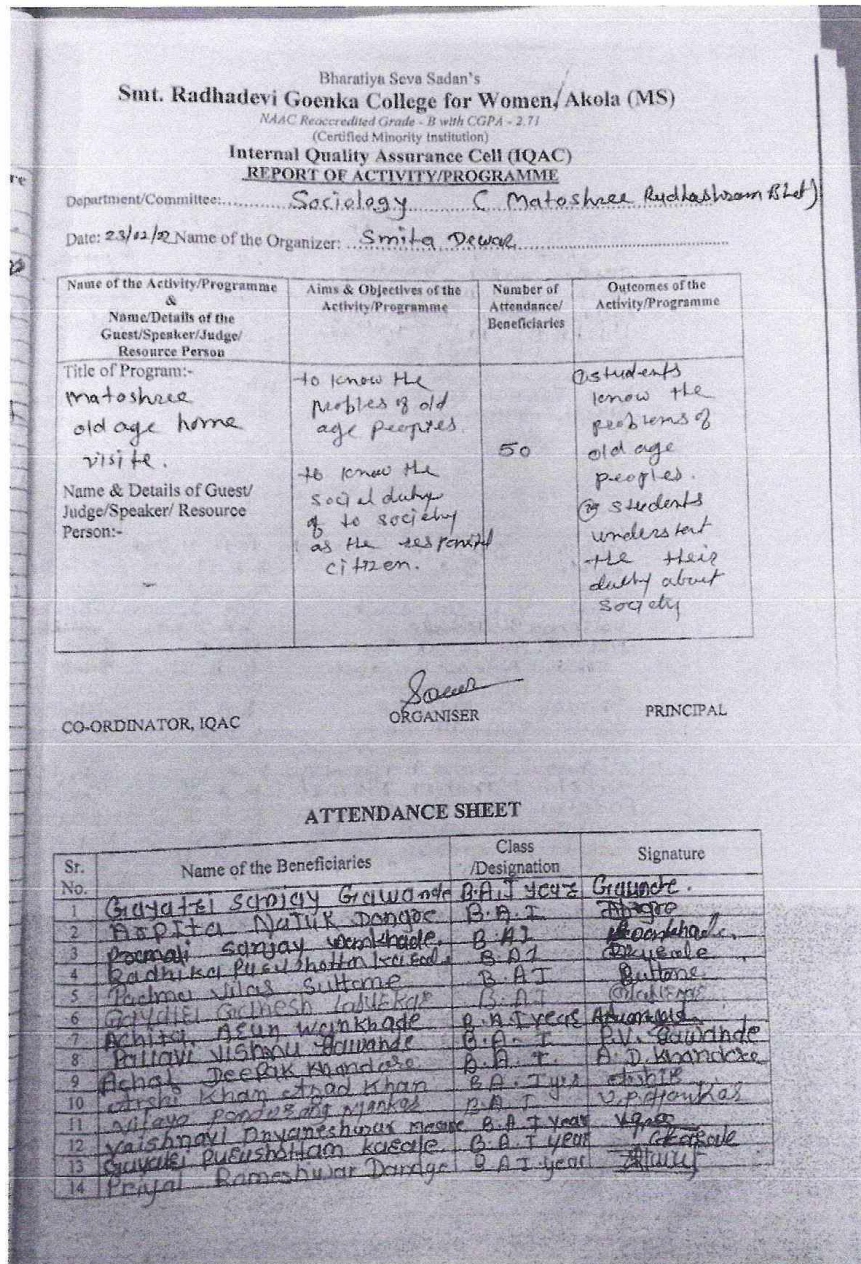 Bharatiya Seva Sadan's
Smt. Radhadevi Goenka College for Women, Akola (MS)
NAAC Reaccredited Grade - B with CGPA - 2.71
(Certified Minority Institution)
Internal Quality Assurance Cell (IQAC)
REPORT OF ACTIVITY/PROGRAMME
Department/Committee:...... Sociology ...... ( Matoshree
Date: 23/02/22 Name of the Organizer: Smita Dewar
Name of the Activity/Programme & Name/Details of the Guest/Speaker/Judge/ Resource Person
Aims & Objectives of the Activity/Programme
Number of Attendance/ Beneficiaries
Outcomes of the Activity/Programme
Title of Program:-
matoshree
old age home
visite.
Name & Details of Guest/
Judge/Speaker/ Resource
Person:-
to know the
of old
age peoples.
to know the
social duty
of to society
as the
citizen.
50
students
know the
problems of
old age
peoples.
students
understant
the their
about
society
CO-ORDINATOR, IQAC
ORGANISER
PRINCIPAL
ATTENDANCE SHEET
Sr. No. Name of the Beneficiaries Class /Designation Signature
1 Gayatri Sanjay Gawande B.A.I year Gawande.
2 Arpita B.A.I
3 Sanjay Wankhade B.A I
4 Radhika Purushottam B.A I
5 Padma Vilas Suttone B.A I Suttone
6 Gayatri Ganesh B.A I
7 Achita Arun Wankhade B.A I year
8 Pallavi Vishnu Gawande B.A.I P.V. Gawande
9 Achal Deepak Khandare B.A.I. A.D. Khandare
10 Arshi Khan Khan B.A. I yer
11 Pandurang B.A.I
12 Vaishnavi Dnyaneshwar B.A I year
13 Gayatri Purushottam Kasale B.A.I year
14 Priyal Rameshwar Dandge B.A I year